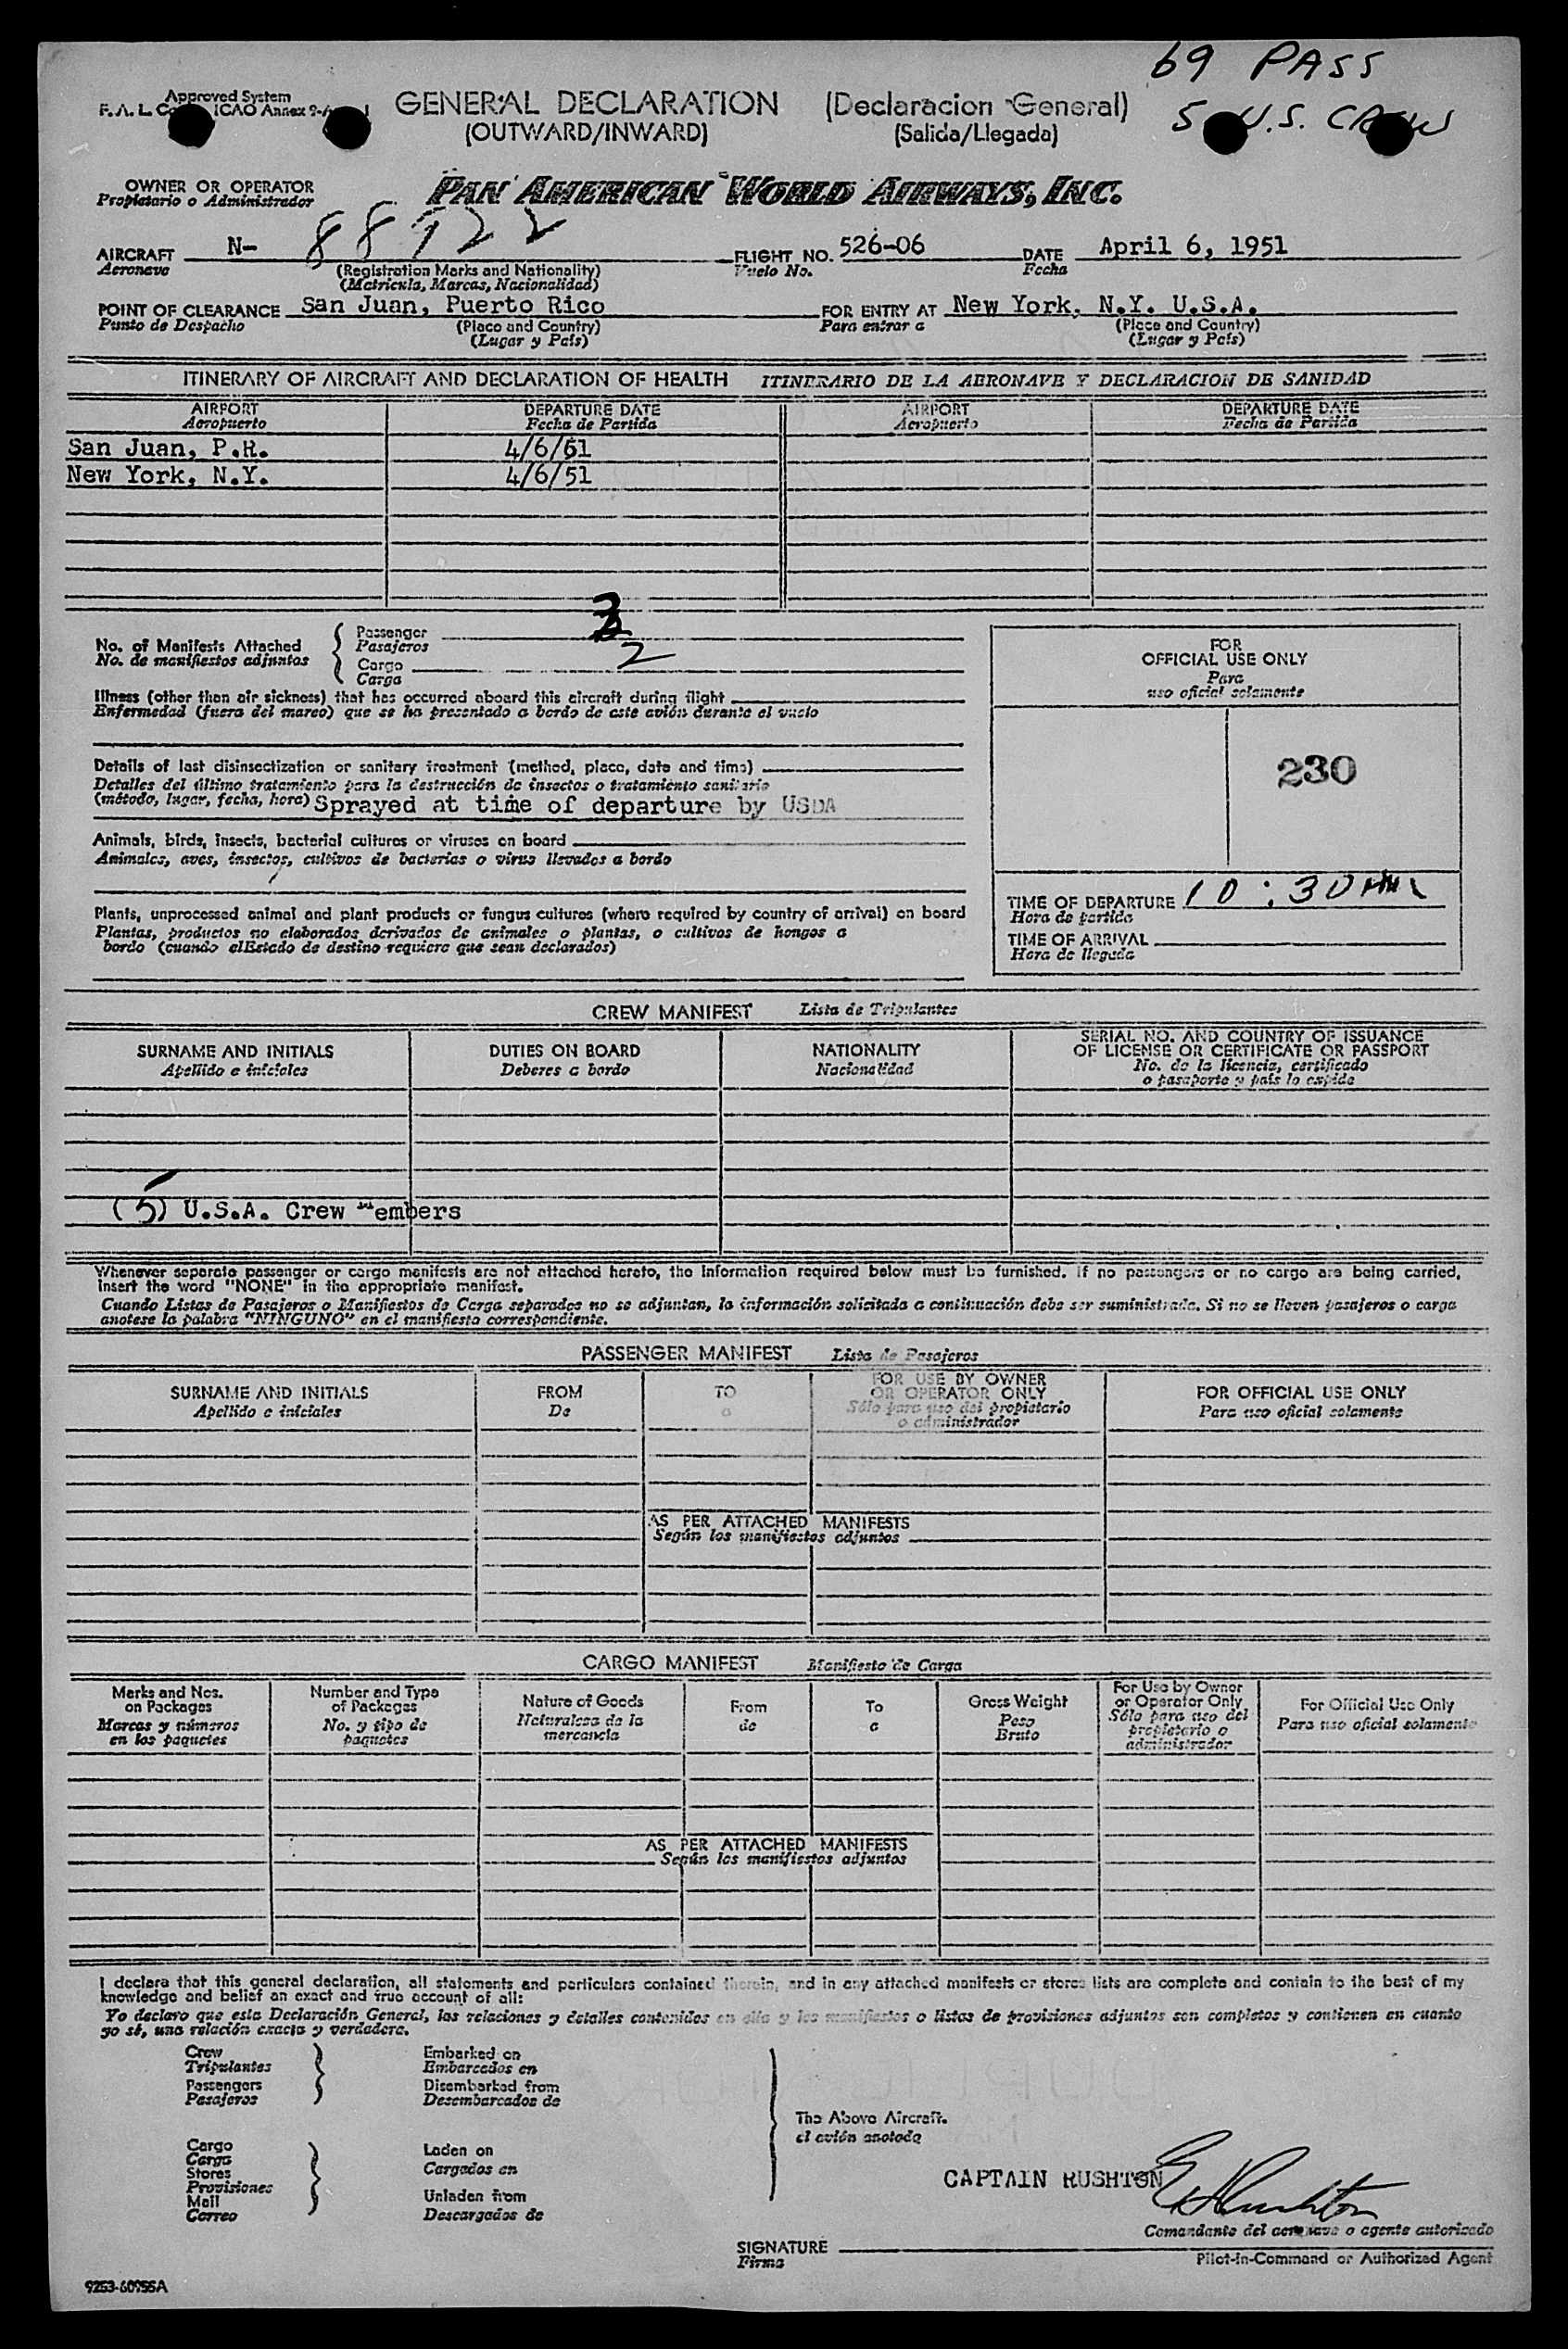 69 PASS
5 U.S. CREW
Approved System
GENERAL DECLARATION (Declaracion General)
F.A.L. ICAO Annex 9-
(OUTWARD/INWARD) (Salida/Llegada)
OWNER OR OPERATOR PAN AMERICAN WORLD AIRWAYS, INC.
Propietario o Administrador
AIRCRAFT N- 88922 FLIGHT NO. 526-06 DATE April 6, 1951
Aeronave (Registration Marks and Nationality) Vuelo No. Fecha
(Matricula, Marcas, Nacionalidad)
POINT OF CLEARANCE San Juan, Puerto Rico FOR ENTRY AT New York, N.Y. U.S.A.
Punto de Despacho (Place and Country) Para entrar a (Place and Country)
(Lugar y País) (Lugar y País)
ITINERARY OF AIRCRAFT AND DECLARATION OF HEALTH ITINERARIO DE LA AERONAVE Y DECLARACION DE SANIDAD
AIRPORT DEPARTURE DATE AIRPORT DEPARTURE DATE
Aeropuerto Fecha de Partida Aeropuerto Fecha de Partida
San Juan, P.R. 4/6/51
New York, N.Y. 4/6/51
No. of Manifests Attached Passenger 3
No. de manifiestos adjuntos Pasajeros
Cargo 2
Carga
FOR
OFFICIAL USE ONLY
Para
uso oficial solamente
230
Illness (other than air sickness) that has occurred aboard this aircraft during flight
Enfermedad (fuera del mareo) que se ha presentado a bordo de este avión durante el vuelo
Details of last disinsectization or sanitary treatment (method, place, date and time)
Detalles del último tratamiento para la destrucción de insectos o tratamiento sanitario
(método, lugar, fecha, hora) Sprayed at time of departure by USDA
Animals, birds, insects, bacterial cultures or viruses on board
Animales, aves, insectos, cultivos de bacterias o virus llevados a bordo
Plants, unprocessed animal and plant products or fungus cultures (where required by country of arrival) on board
Plantas, productos no elaborados derivados de animales o plantas, o cultivos de hongos a
bordo (cuando elEstado de destino requiera que sean declarados)
TIME OF DEPARTURE 10:30
Hora de partida
TIME OF ARRIVAL
Hora de llegada
CREW MANIFEST Lista de Tripulantes
SURNAME AND INITIALS DUTIES ON BOARD NATIONALITY SERIAL NO. AND COUNTRY OF ISSUANCE
OF LICENSE OR CERTIFICATE OR PASSPORT
Apellido e iniciales Deberes a bordo Nacionalidad No. de la licencia, certificado
o pasaporte y país lo expide
(5) U.S.A. Crew Members
Whenever separate passenger or cargo manifests are not attached hereto, the information required below must be furnished. If no passengers or no cargo are being carried,
insert the word "NONE" in the appropriate manifest.
Cuando Listas de Pasajeros o Manifiestos de Carga separados no se adjuntan, la información solicitada a continuación debe ser suministrada. Si no se lleven pasajeros o carga
anotese la palabra "NINGUNO" en el manifiesto correspondiente.
PASSENGER MANIFEST Lista de Pasajeros
SURNAME AND INITIALS FROM TO FOR USE BY OWNER
OR OPERATOR ONLY FOR OFFICIAL USE ONLY
Apellido e iniciales De a Sólo para uso del propietario
o administrador Para uso oficial solamente
AS PER ATTACHED MANIFESTS
Según los manifiestos adjuntos
CARGO MANIFEST Manifiesto de Carga
Marks and Nos.
on Packages
Marcas y números
en los paquetes
Number and Type
of Packages
No. y tipo de
paquetes
Nature of Goods
Naturaleza de la
mercancía
From
de
To
a
Gross Weight
Peso
Bruto
For Use by Owner
or Operator Only
Sólo para uso del
propietario o
administrador
For Official Use Only
Para uso oficial solamente
AS PER ATTACHED MANIFESTS
Según los manifiestos adjuntos
I declare that this general declaration, all statements and particulars contained therein, and in any attached manifests or stores lists are complete and contain to the best of my
knowledge and belief an exact and true account of all:
Yo declaro que esta Declaración General, las relaciones y detalles contenidos en ella y los manifiestos o listas de provisiones adjuntos son completos y contienen en cuanto
yo sé, una relación exacta y verdadera.
Crew
Tripulantes
Passengers
Pasajeros
Embarked on
Embarcados en
Disembarked from
Desembarcados de
Cargo
Carga
Stores
Provisiones
Mail
Correo
Laden on
Cargados en
Unladen from
Descargados de
The Above Aircraft.
el avión anotado
CAPTAIN RUSHTON
Comandante del aeronave o agente autorizado
SIGNATURE
Firma
Pilot-in-Command or Authorized Agent
9253-60955A